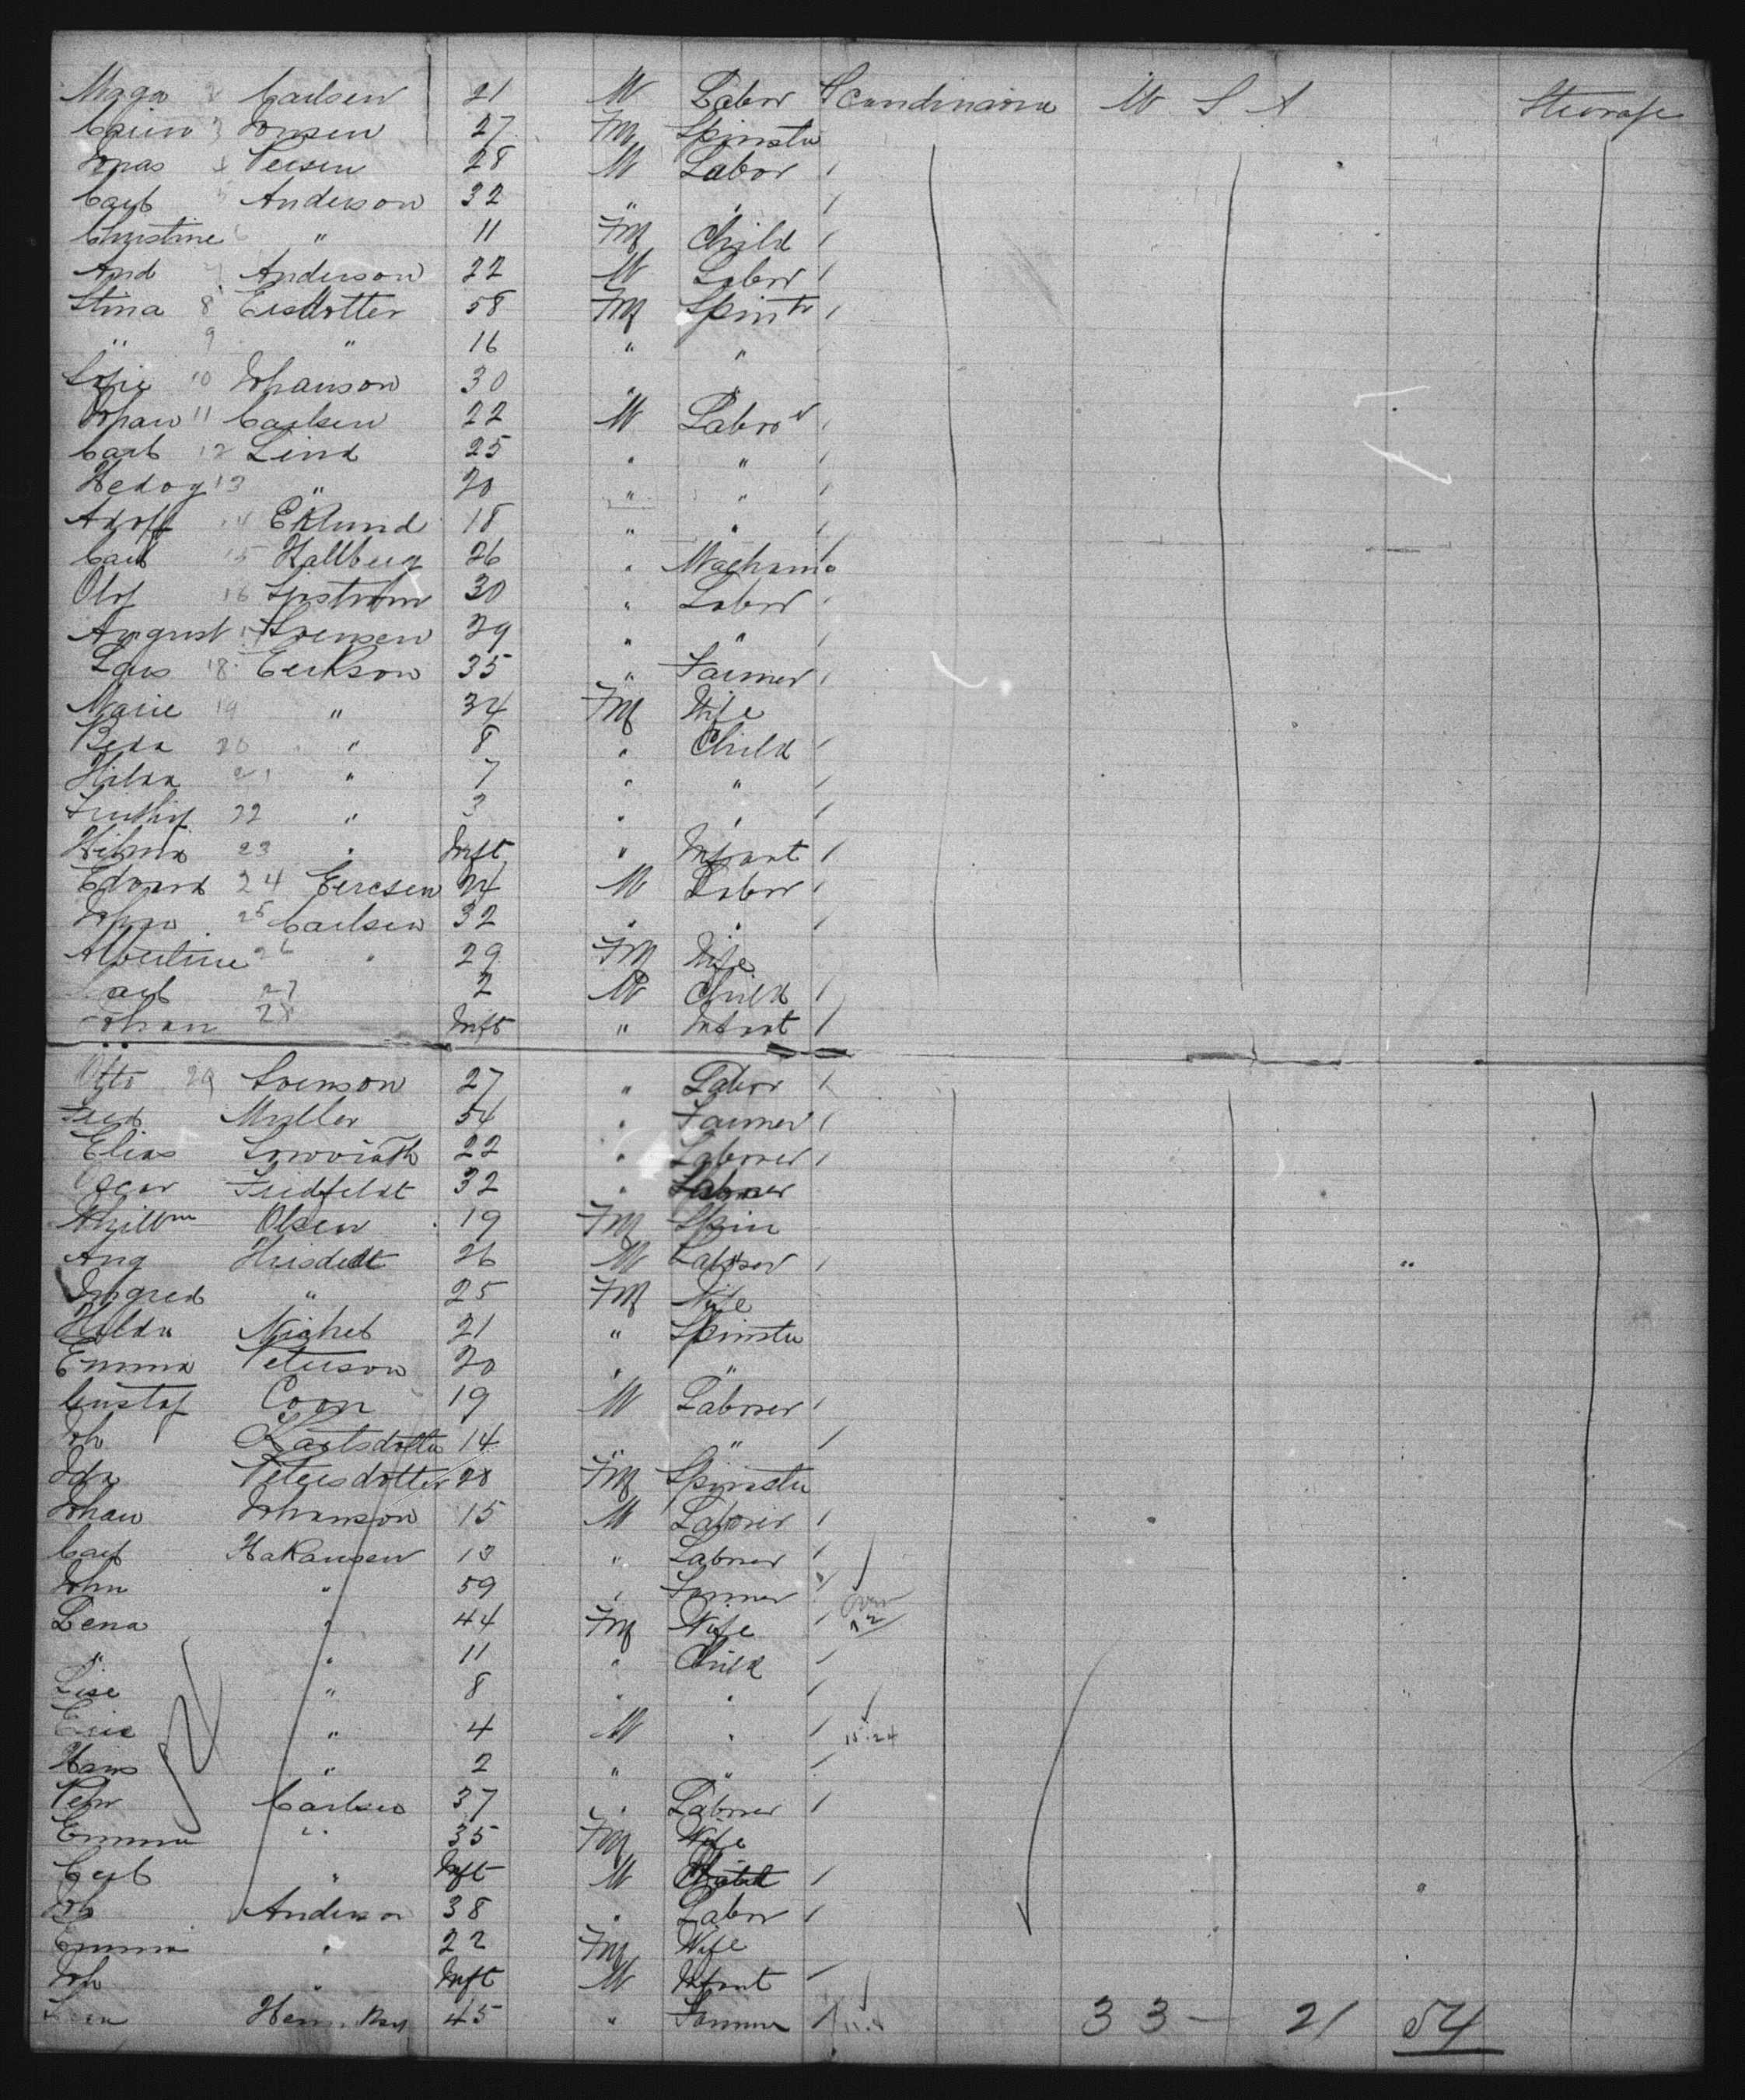 Carlsen 21 M Labor Scandinavia U S A Steerage
3 Jonsen 27 Fm Spinster
Jonas 4 Persen 28 M Labor /
Carl 5 Anderson 32 " " /
Christine 6 " 11 Fm Child /
And 7 Anderson 22 M Labor /
Stina 8 Ersdotter 58 Fm Spinstr /
" 9 " 16 " "
Sofie 10 Johanson 30 " "
Johan 11 Carlsen 22 M Labor /
Carl 12 Lind 25 " " /
13 " 20 " " /
Adolf 14 Eklund 18 " " /
Carl 15 Hallberg 26 "
Olof 16 30 " Labor /
August 17 Svensen 29 " " /
Lars 18 Erikson 35 " Farmer /
Marie 19 " 34 Fm Wife
Beda 20 " 8 " Child /
Hilda 21 " 7 " " /
22 " 3 " " /
Hilma 23 " Inft " Infant /
Edvard 24 Ericsen 24 M Labor /
Johan 25 Carlsen 32 " " /
Albertine 26 " 29 Fm Wife
Carl 27 2 M Child /
Johan 28 Inft " Infant /
Otto 29 Svenson 27 " Labor /
Fred Muller 54 " Farmer /
Elias 22 " Laborer /
Oscar Fredfeldt 32 " Laborer
Olsen 19 Fm Spin
Aug 26 M Laborer / "
Ingred " 25 Fm Wife
Hilda 21 " Spinster
Emma Peterson 20 " "
Gustaf Coon 19 M Laborer /
Joh Karlsdotter 14 " " /
Ida Petersdotter 28 Fm Spinster
Johan Johanson 15 M Laborer /
Carl Hakansen 13 " Laborer /
John " 59 " Farmer / Over
Lena " 44 Fm Wife / 12
" " 11 " Child /
Lise " 8 " " /
Eric " 4 M " / 11.24
Hans " 2 " " /
Pehr Carlsen 37 " Laborer /
Emma " 35 Fm Wife
Carl " Inft M /
Joh Anderson 38 " Labor /
Emma " 22 Fm Wife
Joh " Inft M Infant /
45 " Farmer / 33 - 21 54